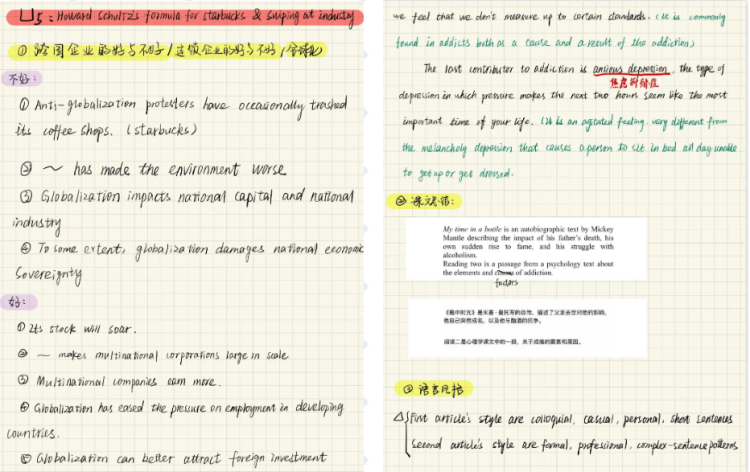 U5: Howard Schultz's formula for starbucks & swiping at industry
① 跨国企业的好与不好/连锁企业的好与不好/全球化
不好:
① Anti-globalization protesters have occasionally trashed
its coffee shops. (starbucks)
② ~ has made the environment worse
③ Globalization impacts national capital and national
industry
④ To some extent, globalization damages national economic
Sovereignty
好:
① Its stock will soar.
② ~ makes multinational corporations large in scale
③ Multinational companies earn more.
④ Globalization has eased the pressure on employment in developing
countries.
⑤ Globalization can better attract foreign investment
we feel that we don't measure up to certain standards. (It is commonly
found in addicts both as a cause and a result of the addiction)
The last contributor to addiction is anxious depression, the type of
焦虑抑郁症
depression in which pressure makes the next two hours seem like the most
important time of your life. (It is an agitated feeling. very different from
the melancholy depression that causes a person to sit in bed all day unable
to get up or get dressed.
② 课文
My time in a bottle is an autobiographic text by Mickey
Mantle describing the impact of his father's death, his
own sudden rise to fame, and his struggle with
alcoholism.
Reading two is a passage from a psychology text about
the elements and of addiction.
factors
《瓶中时光》是米基·曼托写的自传,描述了父亲去世对他的影响,
他自己突然成名,以及他与酗酒的抗争。
阅读二是心理学课文中的一段,关于成瘾的要素和原因。
③ 语言风格
First article's style are colloquial, casual, personal, short sentences
Second article's style are formal, professional, complex-sentence patterns